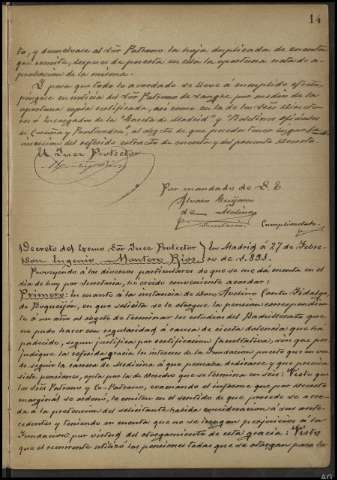 14
to, y devuélvase al Sor Patrono la hoja duplicada de cuenta
que remite, después de puesta en ella la oportuna nota de a-
probación de la misma.
Y para que todo lo acordado se lleve á cumplido efecto,
póngase en noticia del Sor Patrono de sangre por medio de la
oportuna copia certificada, así como en la de los Sres Directo-
res ó Encargados de la "Gaceta de Madrid" y "Boletines oficiales
de Coruña y Pontevedra", al objeto de que pueda tener lugar la
inserción del referido extracto de cuenta y del presente decreto
El Juez Protector
Por mandado de S. E.
Secretario
Cumplimentado.
Decreto del Excmo Sor Juez Protector
Don Eugenio Montero Ríos
En Madrid á 27 de Febre-
ro de 1.893.
Proveyendo á los diversos particulares de que se me dá cuenta en el
día de hoy por Secretaría, he creído conveniente acordar:
Primero: En cuanto á la instancia de don Avelino Couto Fidalgo,
de Bugueijón, en que solicita se le otorgue la pensión correspondien-
te á un año al objeto de terminar los estudios del Bachillerato que
no pudo hacer con regularidad á causa de cierta dolencia que há
padecido, según justifica por certificación facultativa, sin que per-
judique la referida gracia los intereses de la Fundación puesto que en vez
de seguir la carrera de Medicina á que pensaba dedicarse y que precisa
siete anuales, opta por la de Derecho que se termina en seis: Visto que
los Sres Patrono y Co-Patrono, evacuando el informe que por decreto
marginal se ordenó, lo emiten en el sentido de que procede se acce-
da á la pretensión del solicitante habida consideración á sus ante-
cedentes y teniendo en cuenta que no se irrogan perjuicios á la
Fundación por virtud del otorgamiento de esta gracia: Visto
que el recurrente utilizó las pensiones todas que se otorgan para la